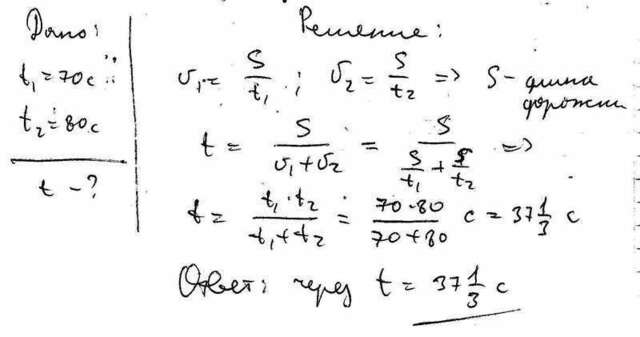 Дано:
t₁ = 70 с
t₂ = 80 с
t – ?
Решение:
υ₁ = S/t₁ ; υ₂ = S/t₂ => S – длина
дорожки
t = S/(υ₁ + υ₂) = S/(S/t₁ + S/t₂) =>
t = (t₁ · t₂)/(t₁ + t₂) = (70 · 80)/(70 + 80) с = 37 1/3 с
Ответ: через t = 37 1/3 с